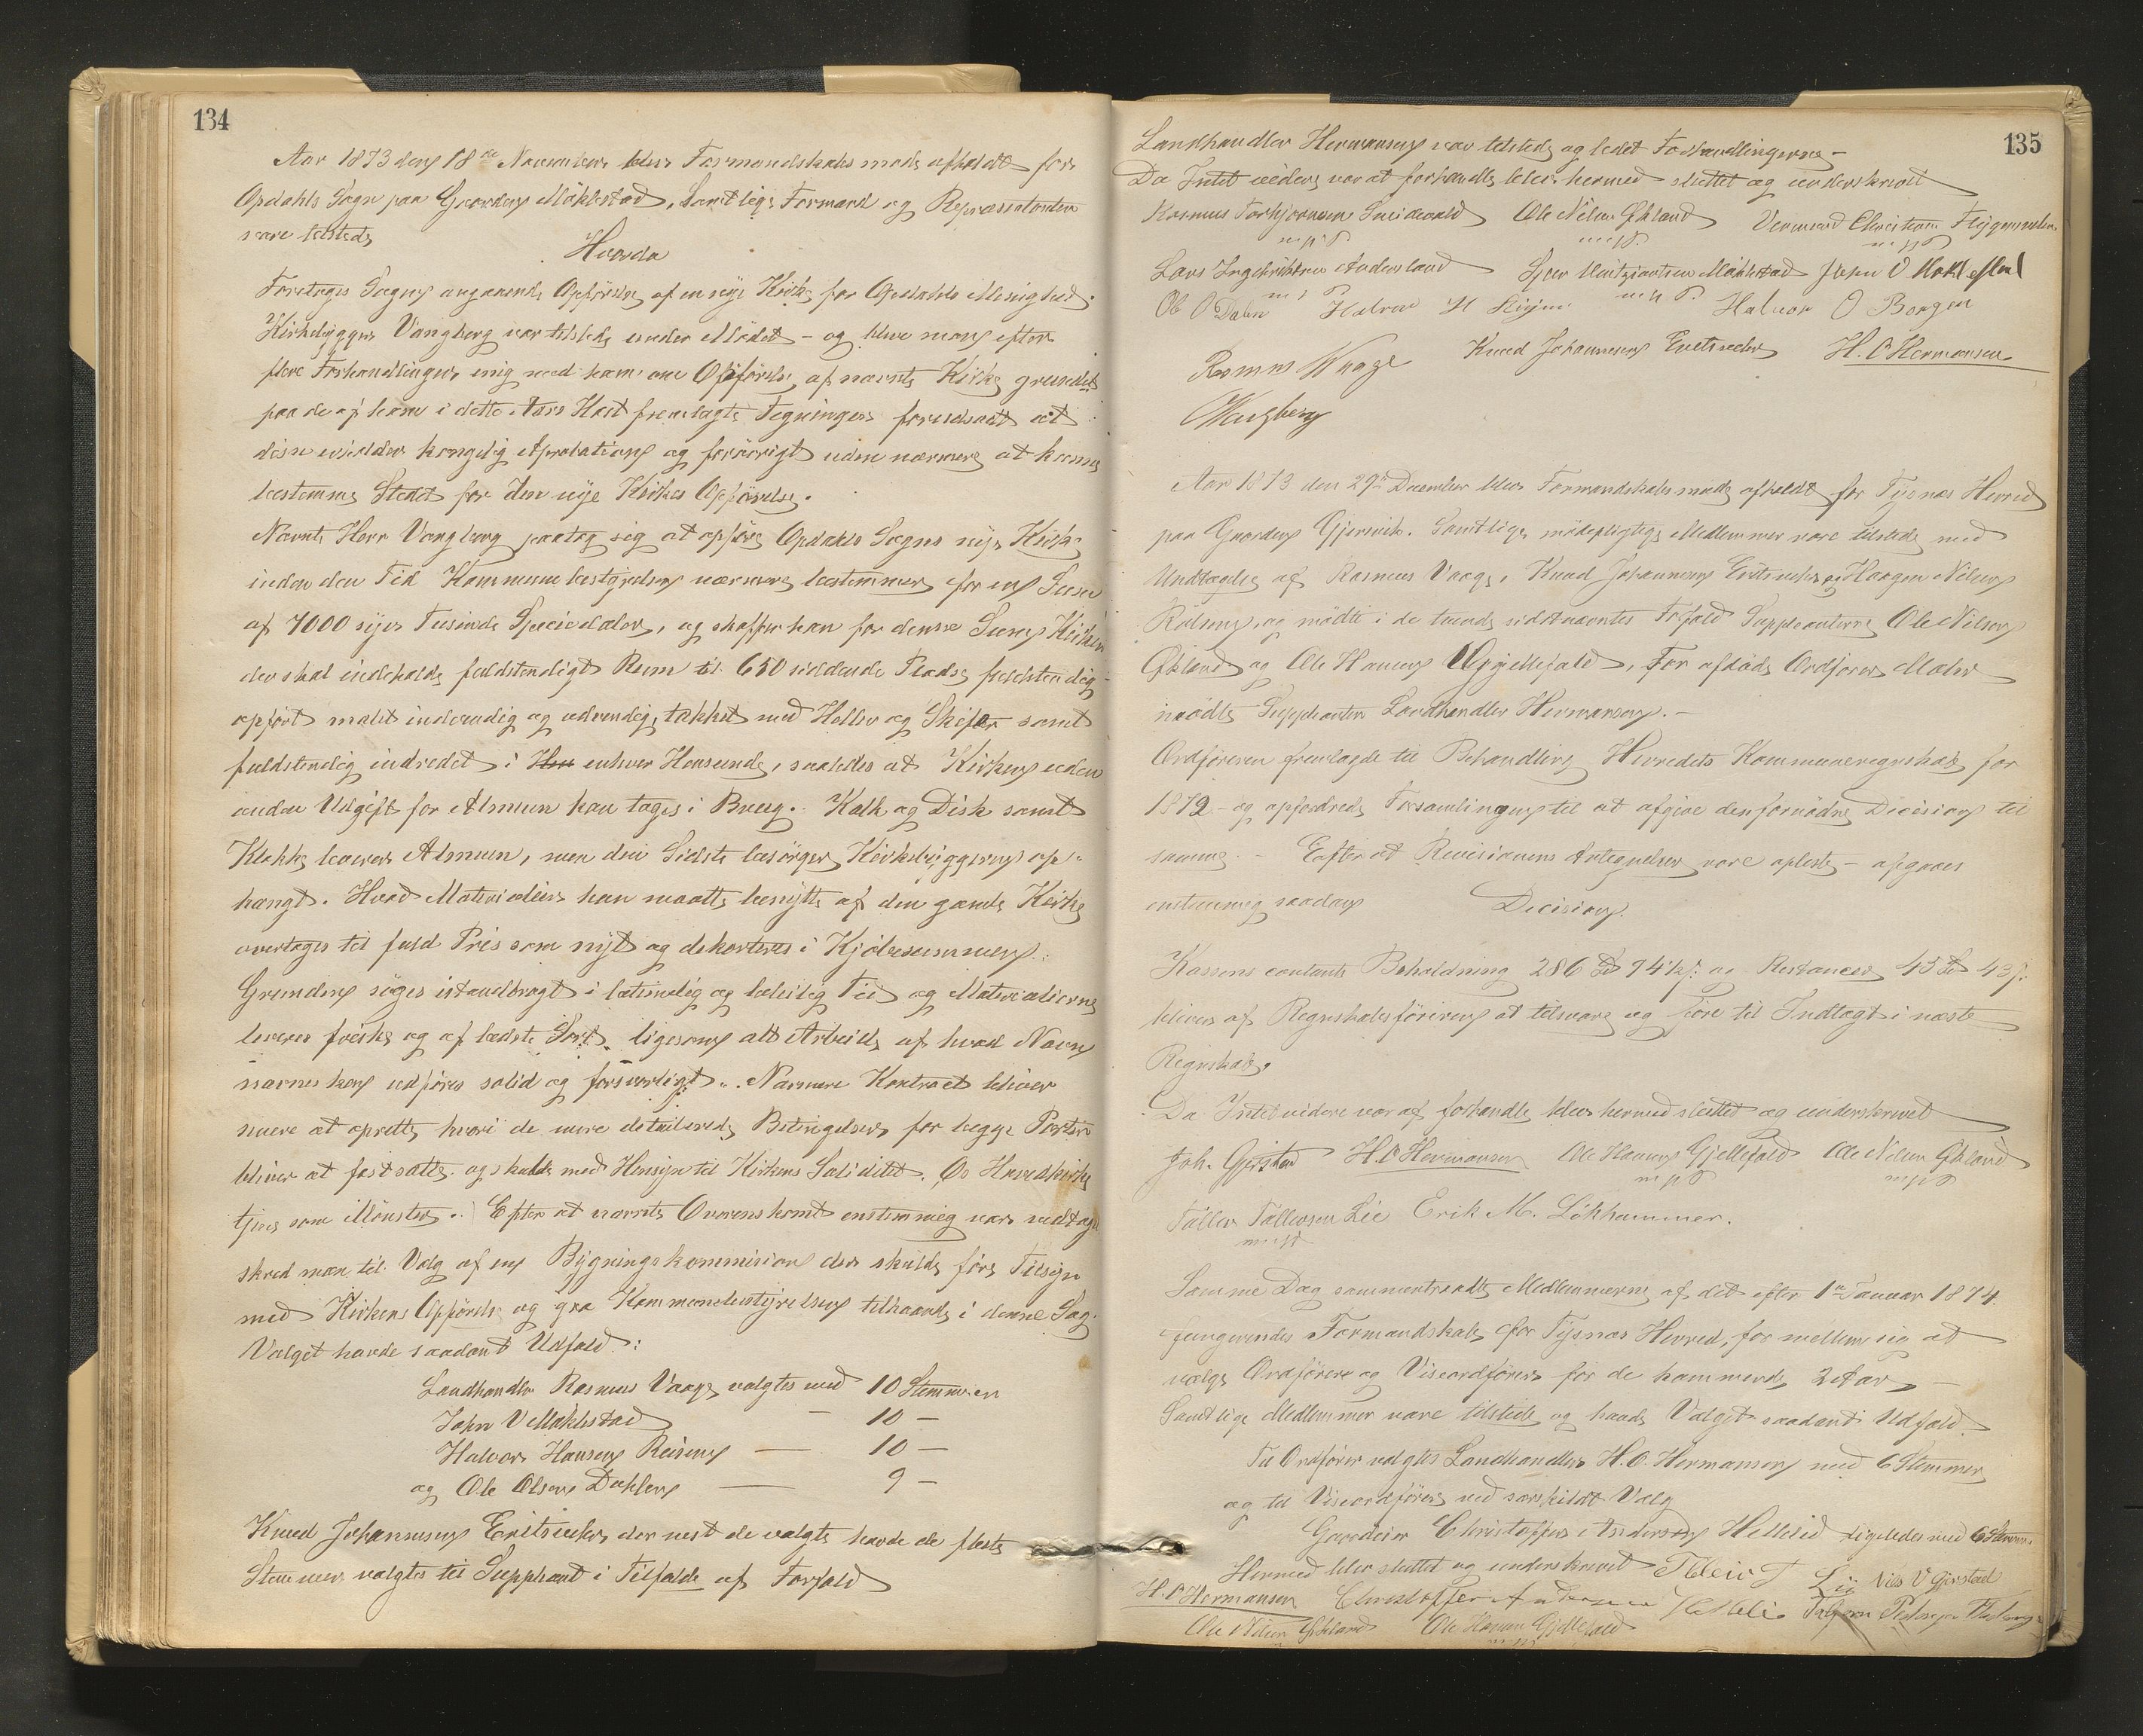 134
Aar 1873 den 18de November blev Formandskabsmøde afholdt for
Opdahls Sogn paa Gaarden Møklestad, Samtlige Formænd og Repræsentanter
vare tilstede
Hvorda
Foretoges Sagen angaaende Opførelse af en nye Kirke for Opdahls Menighed.
Kirkebygger Vangberg var tilstede under Mødet – og blev man efter
flere Forhandlinger enig med ham om Opførelse af nævnte Kirke grundet
paa de af ham i dette Aars Høst fremlagte Tegninger forudsadt at
disse erholder kongelig Aprobation og forøvrigt uden nærmere at kunne
bestemme Stedet for den nye Kirkes Opførelse.
Nævnte Herr Vangberg paatog sig at opføre Opdahls Sogns nye Kirke
inden den Tid Kommunebestyrelsen nærmere bestemmer for en Sum
af 7000 syv Tusinde Speciedaler, og skaffer han for denne Sum Kirken
der skal indeholde fuldstendigt Rum til 650 siddende Pladse fuldstendig
opført malet indvendig og udvendig, tækket med Heller og Skifer samt
fuldstendig indredet i enhver Henseende, saaledes at Kirken uden
anden Udgift for Almuen kan tages i Brug. Kalk og Disk samt
Klokke leverer Almuen, men den Sidste besørger Kirkebyggeren op-
hængt. Hvad Materialier han maatte benytte af den gamle Kirke
overtages til fuld Pris som nyt og dekorteres i Kjøbesummen.
Grunden søges istandbragt i betimelig og beleilig Tid og Materialierne
leveres friske og af bedste Sort, ligesom alt Arbeide af hvad Navn
nævnes kan udføres solid og forsvarligt. Nærmere Kontract bliver
mere at oprette hvori de mere detailerede Betingelser for begge Parter
bliver at fastsætte og skulde med Hensyn til Kirkens Soliditet. Os Hovedkirke
tjene som Mønster. Efter at nævnte Overenskomst enstemmig var vedtaget
skred man til Valg af en Bygningskommision der skulde føre Tilsyn
med Kirkens Opførelse og gaa Kommunebestyrelsen tilhaande i denne Sag.
Valget havde saadant Udfald:
Landhandler Rasmus Vaage valgtes med 10 Stemmer
John V Møklestad – 10 –
Halvor Hansen Reisen – 10 –
og Ole Olsen Dahlen – 9 –
Knud Johannesen Eritsvehr der nest de valgte havde de fleste
Stemmer valgtes til Suppleant i Tilfælde af Forfald
135
Landhandler Hermansen var tilstede og ledet Forhandlingerne –
Da Intet videre var at forhandle blev hermed sluttet og underskrevet
Rasmus Torbjørnsen Ole Nilsen Økland
Lars Ingebrigtsen Møklestad
Ole O Dalen Halvor H Halvor O Borgen
Rasmus Waage Knud Johannesen H. O Hermansen
Vangberg
Aar 1873 den 29de December blev Formandskabsmøde afholdt for Tysnæs Herred
paa Gaarden Gjersvik. Samtlige mødepligtige Medlemmer vare tilstede med
Undtagelse af Rasmus Vaage, Knud Johannesen Eritsvehr og Haagen Nilsen
og mødte i de tvende sidstnævntes Forfald Suppleanterne Ole Nilsen
Økland og Ole Hansen Gjellefald, For afdøde Ordfører Møhn
mødte Suppleanten Landhandler Hermansen. –
Ordføreren fremlagde til Behandling Herredets Kommuneregnskab for
1872 – og opfordrede Forsamlingen til at afgive den fornødne Dicision til
samme. – Efter at Revisionens Antegnelser vare oplæste – afgaves
enstemmig saadan
Dicision.
Kassens contante Beholdning 286 Spd 74 ß: og Restancer 43 Spd 43 ß:
bliver af Regnskabsføreren at tilsvare og føre til Indtægt i næste
Regnskab.
Da Intet videre var at forhandle blev hermed sluttet og underskrevet
Joh. Gjerstad H. O Hermansen Ole Hansen Gjellefald Ole Nilsen Økland
Tøllev Tollevsen Lie Erik M. Løkhammer.
Samme Dag sammentraadte Medlemmerne af det efter 1ste Januar 1874
fungerende Formandskab for Tysnæs Herred, for mellem sig at
vælge Ordfører og Viseordfører for de kommende 2 Aar –
Samtlige Medlemmer vare tilstede og havde Valget saadant Udfald.
Til Ordfører valgtes Landhandler H. O. Hermansen med 6 Stemmer
og til Viseordfører ved særskildt Valg
Gaardeier Christopher Andersen Hellesid ligeledes med 6 Stemmer
Hermed blev sluttet og underskrevet Nils V Gjerstad
H. O Hermansen Christoffer Andersen
Ole Nilsen Økland Ole Hansen Gjellefald